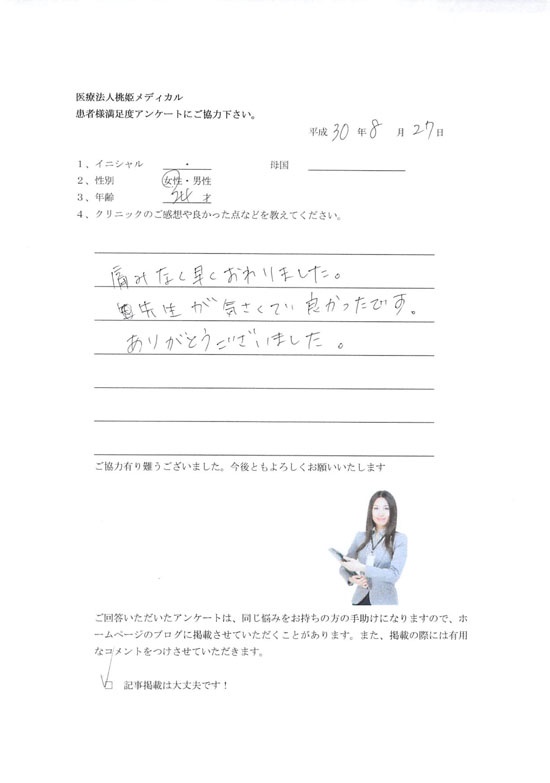 医療法人桃姫メディカル
患者様満足度アンケートにご協力下さい。
平成 30 年 8 月 27 日
1、イニシャル ・ 母国
2、性別 女性・男性
3、年齢 24 才
4、クリニックのご感想や良かった点などを教えてください。
痛みなく早くおわりました。
先生が気さくで良かったです。
ありがとうございました。
ご協力有り難うございました。今後ともよろしくお願いいたします
ご回答いただいたアンケートは、同じ悩みをお持ちの方の手助けになりますので、ホ
ームページのブログに掲載させていただくことがあります。また、掲載の際には有用
なコメントをつけさせていただきます。
□ 記事掲載は大丈夫です！